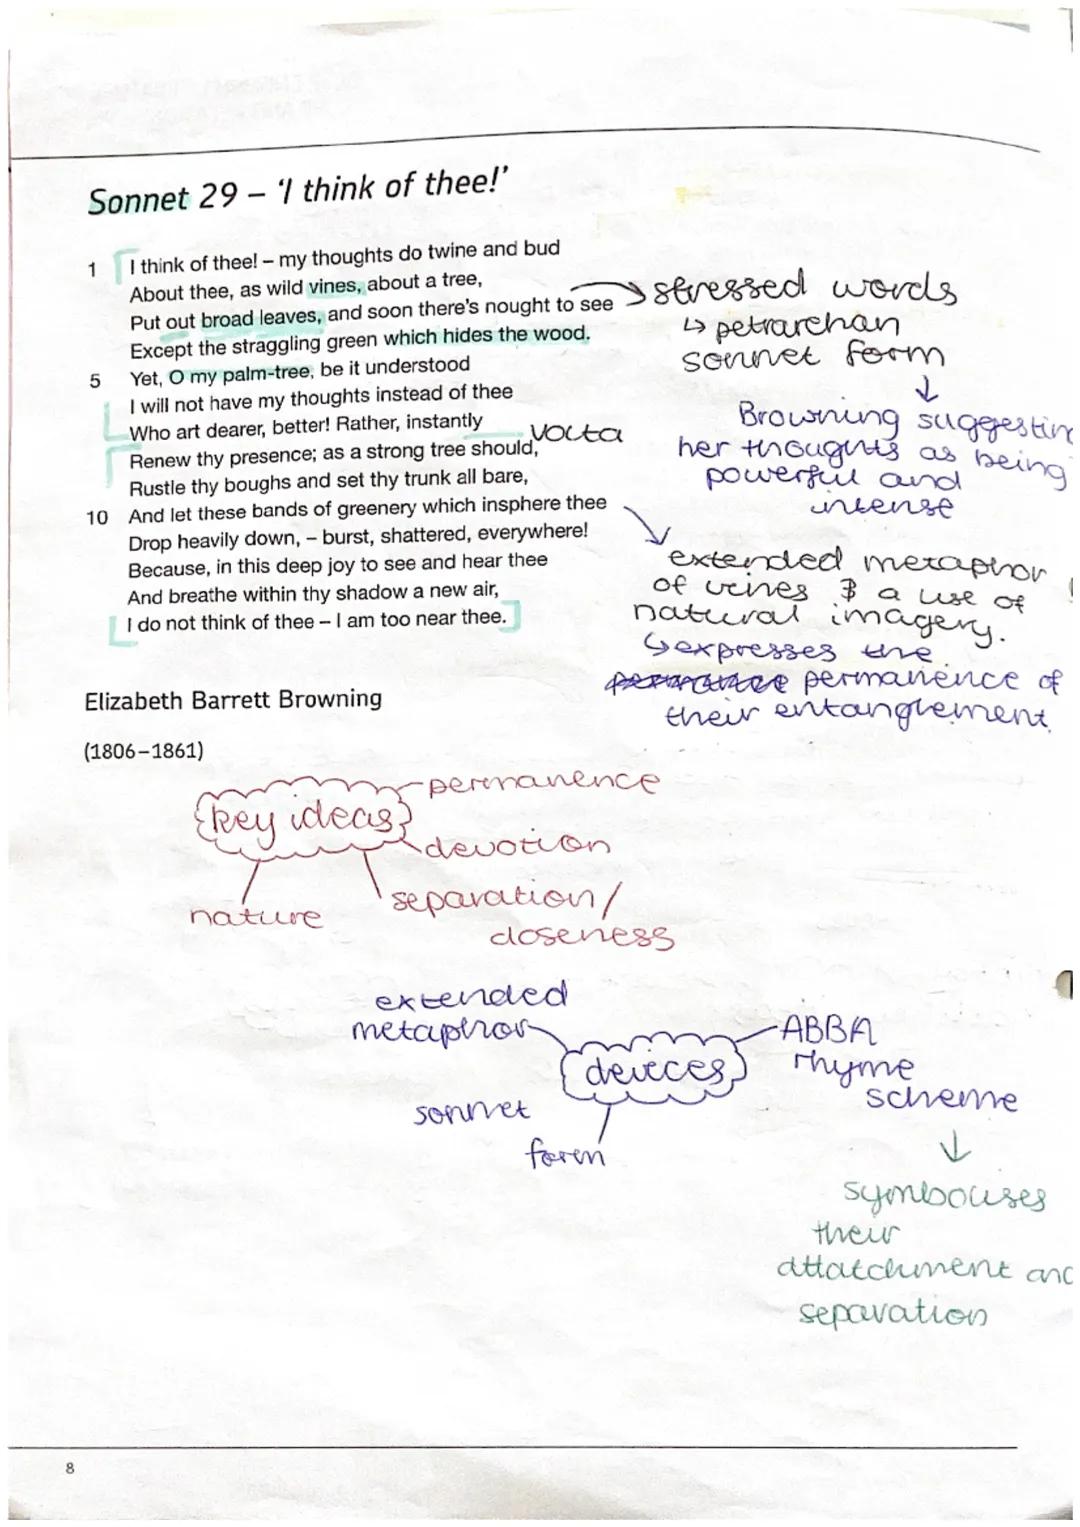 Sonnet 29 – 'I think of thee!'
1 I think of thee! – my thoughts do twine and bud
About thee, as wild vines, about a tree,
Put out broad leaves, and soon there's nought to see
Except the straggling green which hides the wood.
5 Yet, O my palm-tree, be it understood
I will not have my thoughts instead of thee
Who art dearer, better! Rather, instantly
Renew thy presence; as a strong tree should,
Rustle thy boughs and set thy trunk all bare,
10 And let these bands of greenery which insphere thee
Drop heavily down, – burst, shattered, everywhere!
Because, in this deep joy to see and hear thee
And breathe within thy shadow a new air,
I do not think of thee – I am too near thee.
volta
stressed words
↳ petrarchan
sonnet form
↓
Browning suggesting
her thoughts as being
powerful and
intense
extended metaphor
of vines & a use of
natural imagery.
↳ expresses the
permanence of
their entanglement
Elizabeth Barrett Browning
(1806–1861)
key ideas
permanence
devotion
separation/
closeness
nature
extended
metaphor
devices
sonnet
form
ABBA
rhyme
scheme
↓
symbolises
their
attatchment and
separation
8